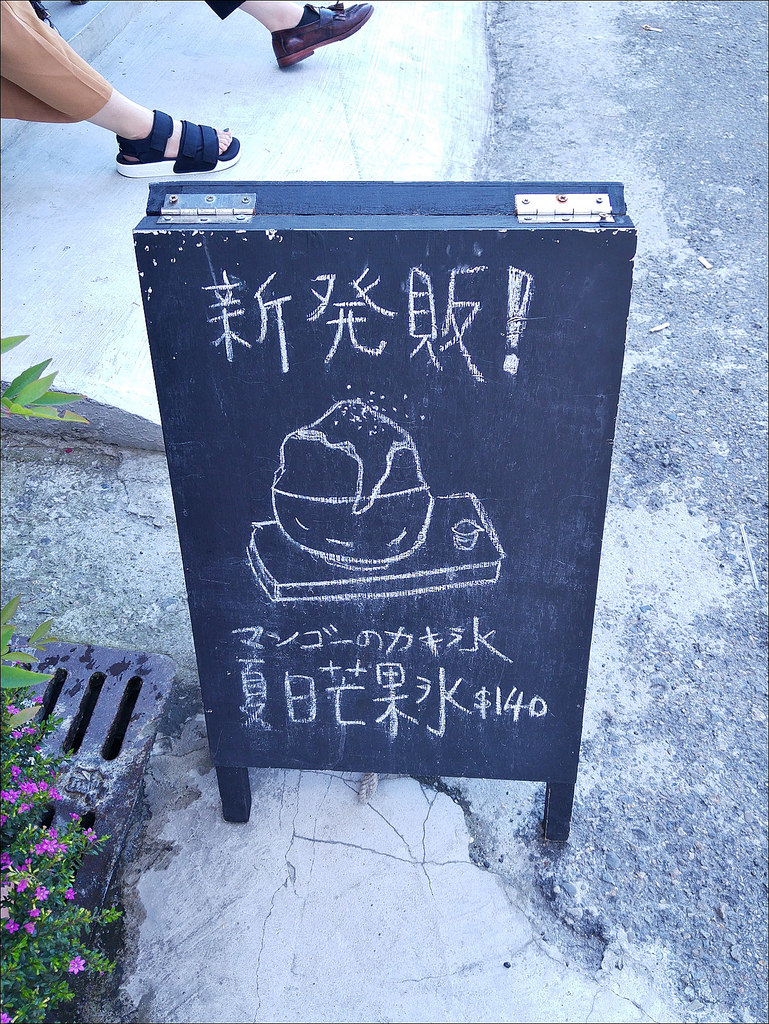 新発販!
マンゴーのカキ氷
夏日芒果氷$140